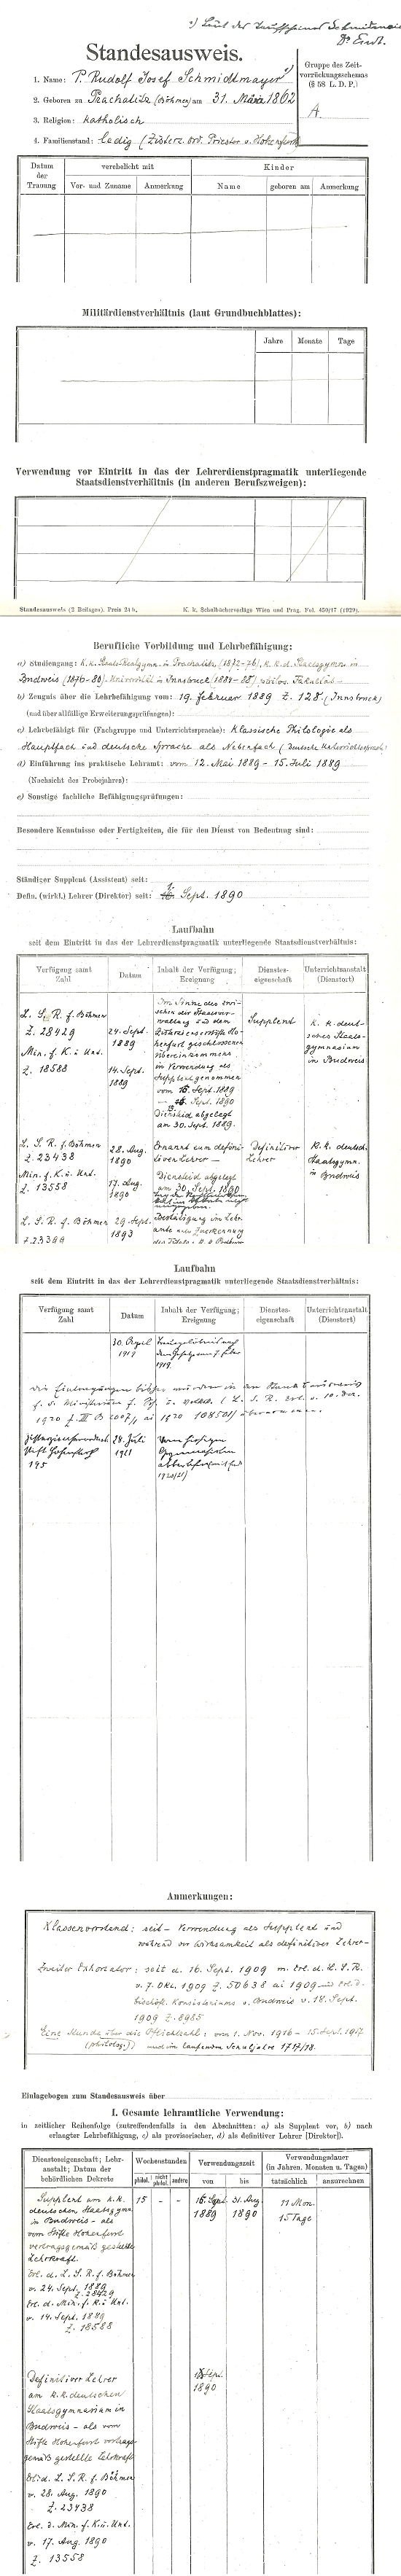 *) Laut des Taufscheines Schmitmaier
Dr Endt.
Standesausweis.
Gruppe des Zeit-
vorrückungsschemas
(§ 58 L. D. P.)
A.
1. Name: P. Rudolf Josef Schmidtmayer *)
2. Geboren zu Prachatitz (Böhmen) am 31. März 1862
3. Religion: katholisch
4. Familienstand: ledig (Zisterz. ord. Priester v. Hohenfurth)
Datum der Trauung
verehelicht mit
Kinder
Vor- und Zuname
Anmerkung
Name
geboren am
Anmerkung
Militärdienstverhältnis (laut Grundbuchblattes):
Jahre Monate Tage
Verwendung vor Eintritt in das der Lehrerdienstpragmatik unterliegende
Staatsdienstverhältnis (in anderen Berufszweigen):
Standesausweis (2 Beilagen). Preis 24 h.
K. k. Schulbücherverlag Wien und Prag.
Berufliche Vorbildung und Lehrbefähigung:
a) Studiengang: k. k. Staats-Realgymn. in Prachatitz (1872-76), k. k. d. Staatsgymn. in
Budweis (1876-80), Universität in Innsbruck (1884-88) philos. Fakultät
b) Zeugnis über die Lehrbefähigung vom: 19. Februar 1889 Z. 128 (Innsbruck)
(und über allfällige Erweiterungsprüfungen):
c) Lehrbefähigt für (Fachgruppe und Unterrichtssprache): klassische Philologie als
Hauptfach und deutsche Sprache als Nebenfach (deutsche Unterrichtssprache)
d) Einführung ins praktische Lehramt: vom 12. Mai 1889 - 15. Juli 1889
(Nachsicht des Probejahres):
e) Sonstige fachliche Befähigungsprüfungen:
Besondere Kenntnisse oder Fertigkeiten, die für den Dienst von Bedeutung sind:
Ständiger Supplent (Assistent) seit:
Defin. (wirkl.) Lehrer (Direktor) seit: 1. Sept. 1890
Laufbahn
seit dem Eintritt in das der Lehrerdienstpragmatik unterliegende Staatsdienstverhältnis:
Verfügung samt Zahl
Datum
Inhalt der Verfügung; Ereignung
Dienstes-eigenschaft
Unterrichtsanstalt (Dienstort)
L. S. R. f. Böhmen
Z. 28429
Min. f. K. u. Unt.
Z. 18588
24. Sept.
1889
14. Sept.
1889
Im Sinne des zwi-
schen der Staatsver-
waltung und dem
Zisterzienserstifte Ho-
henfurt geschlossenen
Übereinkommens
in Verwendung als
Supplent genommen
vom 16. Sept. 1889
Sept. 1890
Diensteid abgelegt
am 30. Sept. 1889.
Supplent
k. k. deut-
sches Staats-
gymnasium
in Budweis
L. S. R. f. Böhmen
Z. 23438
Min. f. K. u. Unt.
Z. 13558
28. Aug.
1890
17. Aug.
1890
Ernannt zum defini-
tiven Lehrer
Diensteid abgelegt
am 30. Sept. 1890
Definitiver
Lehrer
k. k. deutsch.
Staatsgymn.
in Budweis
L. S. R. f. Böhmen
29. Sept.
1893
Bestätigung im Lehr-
amte und Zuerkennung
des Titels
Laufbahn
seit dem Eintritt in das der Lehrerdienstpragmatik unterliegende Staatsdienstverhältnis:
Verfügung samt Zahl
Datum
Inhalt der Verfügung; Ereignung
Dienstes-eigenschaft
Unterrichtsanstalt (Dienstort)
30. April
1919
1919.
Die Eintragungen bisher wurden in
Stift Hohenfurt
195
28. Juli
1921
Vom hiesigen
1920/21)
Anmerkungen:
Klassenvorstand: seit Verwendung als Supplent und
während der Wirksamkeit als definitiver Lehrer
Zweiter Exhortator: seit d. 16. Sept. 1909 m. Erl. d. L. S. R.
v. 7. Okt. 1909 Z. 50638 ai 1909 und Erl. d.
bischöfl. Konsistoriums v. Budweis v. 18. Sept.
1909 Z. 8985
Eine Stunde über die Pflichtzahl: vom 1. Nov. 1916 - 15. Sept. 1917
(philolog.) und im laufenden Schuljahre 1917/18.
Einlagebogen zum Standesausweis über
I. Gesamte lehramtliche Verwendung:
in zeitlicher Reihenfolge (zutreffendenfalls in den Abschnitten: a) als Supplent vor, b) nach
erlangter Lehrbefähigung, c) als provisorischer, d) als definitiver Lehrer [Direktor]).
Diensteseigenschaft; Lehr-
anstalt; Datum der
behördlichen Dekrete
Wochenstunden
philol. nicht philol. andere
Verwendungszeit
von bis
Verwendungsdauer
(in Jahren, Monaten u. Tagen)
tatsächlich anzurechnen
Supplent am k. k.
deutschen Staatsgymn.
in Budweis - als
vom Stifte Hohenfurt
vertragsgemäß gestellte
Lehrkraft.
Erl. d. L. S. R. f. Böhmen
v. 24. Sept. 1889
Z. 28429
Erl. d. Min. f. K. u. Unt.
v. 14. Sept. 1889
Z. 18588
15 - -
16. Sept.
1889
31. Aug.
1890
11 Mon.
15 Tage
Definitiver Lehrer
am k. k. deutschen
Staatsgymnasium in
Budweis - als vom
Stifte Hohenfurt vertrags-
gemäß gestellte Lehrkraft
Erl. d. L. S. R. f. Böhmen
v. 28. Aug. 1890
Z. 23438
Erl. d. Min. f. K. u. Unt.
v. 17. Aug. 1890
Z. 13558
1. Sept.
1890